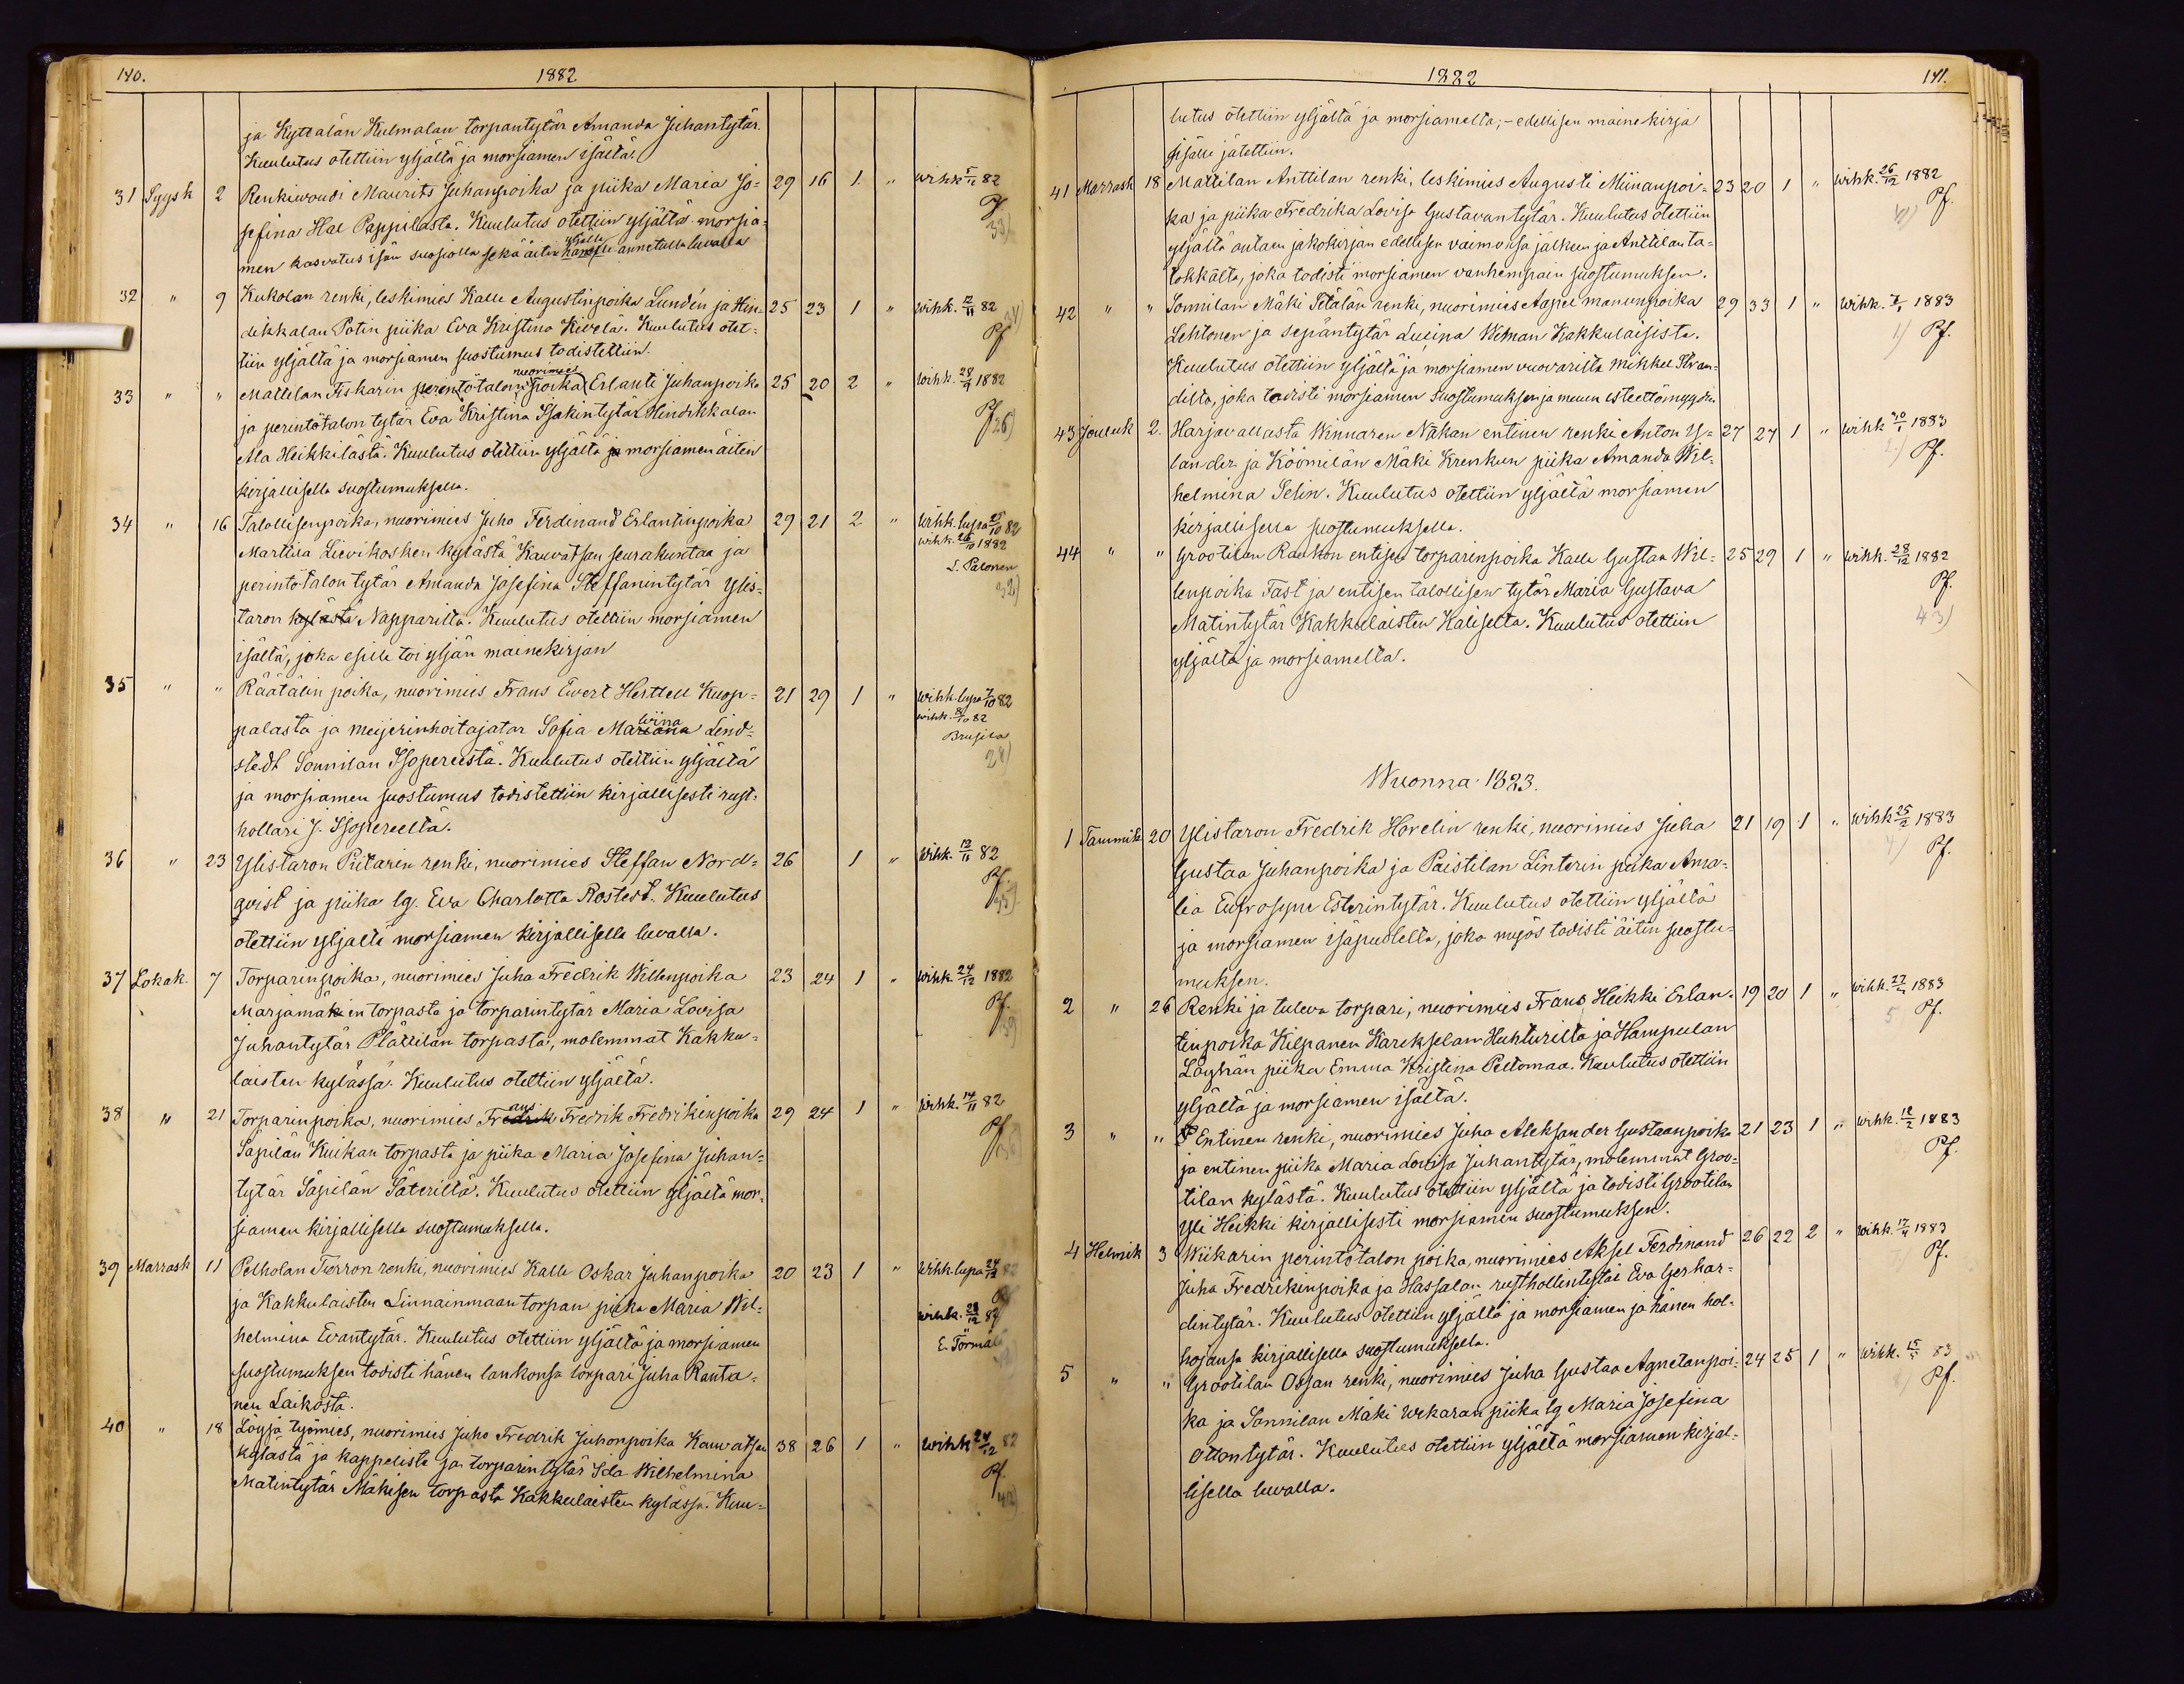 140.
1882
ja Kyttälän Kulmalan torpantytär Amanda Juhantytär.
Kuulutus otettiin yljältä ja morsiamen isältä.
31 Syysk 2 Renkiwoudi Maurits Juhanpoika ja piika Maria Jo= 29 16 1 " wihk 82
sefina Hal Pappilasta. Kuulutus otettiin yljältä morsia= 33)
men kasvatus isän suosiolla sekä äitin yljälle annetulla luvalla
32 " 9 Kukolan renki, leskimies Kalle Augustinpoika Lundén ja Hin= 25 23 1 " wihk. 12/11 82
dikkalan Potin piika Eva Kristina Kivelä. Kuulutus otet= Pf
tiin yljältä ja morsiamen suostumus todistettiin.
33 " " Mattilan Fiskarin perintötalon nuorimies poika Erlanti Juhanpoika 25 20 2 " wihk. 28/9 1882
ja perintötalon tytär Eva Kristina Isakintytär Hindikkalan Pf 26)
Ala Heikkilästä. Kuulutus otettiin yljältä ja morsiamen äiten
kirjallisella suostumuksella.
34 " 16 Talollisenpoika, nuorimies Juho Ferdinand Erlantinpoika 29 21 2 " wihk. lupa 25/10 82
Marttia Lievikosken kylästä Kauvatsan seurakuntaa ja wihk. 26/10 1882
perintö-talon tytär Amanda Josefina Steffanintytär Ylis= L. Palonen
taron kylästä Napparilta. Kuulutus otettiin morsiamen 32)
isältä, joka esille toi yljän mainekirjan
35 " " Räätälin poika, nuorimies Frans Evert Hertell Kuop= 21 29 1 " wihk. lupa 7/10 82
palasta ja meijerinhoitajatar Sofia Mariana wiina Lind= wihk. 8/10 82
stedt Sonnilan Isopereestä. Kuulutus otettiin yljältä 28)
ja morsiamen suostumus todistettiin kirjallisesti rust=
hollari J. Isopereeltä.
36 " 23 Ylistaron Pietarin renki, nuorimies Steffan Nord= 26 1 " wihk. 12/11 82
qvist ja piika lg. Eva Charlotta Rostedt. Kuulutus Pf 35)
otettiin yljältä morsiamen kirjallisella luvalla.
37 Lokak. 7 Torparinpoika, nuorimies Juha Fredrik Willenpoika 23 24 1 " wihk. 24/12 1882
Marjamäken torpasta ja torparintytär Maria Lovisa Pf. 39)
Juhantytär Plättilän torpasta, molemmat Kakku=
laisten kylässä. Kuulutus otettiin yljältä.
38 " 21 Torparinpoika, nuorimies Fredrik ans Fredrik Fredrikinpoika 29 24 1 " wihk. 14/11 82
Säpilän Kuikan torpasta ja piika Maria Josefina Juhan= Pf 36)
tytär Säpilän Säteriltä. Kuulutus otettiin yljältä mor=
siamen kirjallisella suostumuksella.
39 Marrask 11 Pelholan Torron renki, nuorimies Kalle Oskar Juhanpoika 20 23 1 " wihk. lupa 24/12 82
ja Kakkulaisten Linnainmaan torpan piika Maria Wil= Pf
helmina Evantytär. Kuulutus otettiin yljältä ja morsiamen wihk. 28/12 82
suostumuksen todisti hänen lankonsa torpari Juha Ranta= E. Törmälä
nen Laikosta.
40 " 18 Löyjä työmies, nuorimies Juho Fredrik Juhonpoika Kauvatsan 38 26 1 " wihk 24/12 82
kylästä ja kappelista ja torparintytär Ida Wilhelmina Pf.
Matintytär Mäkisen torpasta Kakkulaisten kylässä. Kuu= 40)
1882
141.
lutus otettiin yljältä ja morsiamelta; - edellisen mainekirja
sisälle jätettiin.
41 Marrask 18 Mattilan Anttilan renki, leskimies Augusti Miinanpoi= 23 20 1 " wihk. 26/12 1882
ka ja piika Fredrika Lovisa Gustavantytär. Kuulutus otettiin 41) Pf.
yljältä antaen jakokirjan edellisen vaimonsa jälkeen ja Anttilan ta=
lokkalta, joka todisti morsiamen vanhempain suostumuksen.
42 " " Sonnilan Mäki Petälän renki, nuorimies Aapeli manunpoika 29 33 1 " wihk. 1883
Lehtonen ja sepäntytär Luisina Weman Kakkulaisista. 1) Pf.
Kuulutus otettiin yljältä ja morsiamen vuovarilta Mikkel Stran=
dilta, joka todisti morsiamen suostumuksen ja muun esteettömyyden
43 Jouluk 2. Harjavallasta Winnaren Nahan entinen renki Anton Y= 27 27 1 " wihk 1883
lander ja Köömilän Mäki Krenkun piika Amanda Wil= 2.) Pf.
helmina Selin. Kuulutus otettiin yljältä morsiamen
kirjallisella suostumuksella.
44 " " Grootilan Raukon entisen torparinpoika Kalle Gustaa Wil= 25 29 1 " wihk. 28/12 1882
lenpoika Fast ja entisen talollisen tytär Maria Gustava Pf.
Matintytär Kakkulaisten Kaliselta. Kuulutus otettiin 43)
yljältä ja morsiamelta.
Wuonna 1883.
1 Tammik 20 Ylistaron Fredrik Horelin renki, nuorimies Juha 21 19 1 " wihk 25/2 1883
Gustaa Juhanpoika ja Paistilan Linterin piika Ama= Pf.
lia Eufrosyne Esterintytär. Kuulutus otettiin yljältä
ja morsiamen isäpuolelta, joka myös todisti äitin suostu=
muksen.
2 " 26 Renki ja tuleva torpari, nuorimies Frans Heikki Erlan= 19 20 1 " wihk. 1883
tinpoika Kilpanen Karekselan Huhturilta ja Hampulan 5 Pf.
Löytän piika Emma Kristina Peltomaa. Kuulutus otettiin
yljältä ja morsiamen isältä.
3 " " Entinen renki, nuorimies Juha Aleksander Gustaanpoika 21 23 1 " wihk. 18/2 1883
ja entinen piika Maria Lovisa Juhantytär, molemmat Groo= Pf.
tilan kylästä. Kuulutus otettiin yljältä ja todisti Grootilan
Yli Heikki kirjallisesti morsiamen suostumuksen.
4 Helmik 3 Wiikarin perintötalon poika, nuorimies Aksel Ferdinand 26 22 2 " wihk. 1883
Juha Fredrikinpoika ja Hassalan rusthollintytär Eva Gerhar= Pf.
dintytär. Kuulutus otettiin yljältä ja morsiamen ja hänen hol=
hojansa kirjallisella suostumuksella.
5 " " Grootilan Ossan renki, nuorimies Juha Gustaa Agnetanpoi= 24 25 1 " wihk. 83
ka ja Sonnilan Mäki Uckaran piika lg Maria Josefina Pf.
Ottontytär. Kuulutus otettiin yljältä morsiamen kirjal=
lisella luvalla.